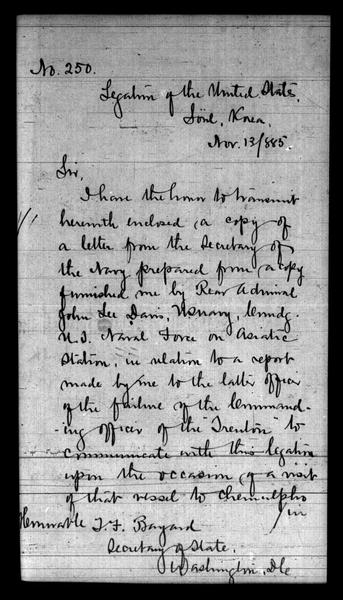 No. 250.
Legation of the United States,
Söul, Korea,
Nov. 13/885.
Sir,
I have the honor to transmit
herewith enclosed a copy of
a letter from the Secretary of
the Navy prepared from a copy
furnished me by Rear Admiral
John Lee Davis, USNavy, Comdg.
U.S. Naval Force on Asiatic
Station, in relation to a report
made by me to the latter officer
of the failure of the Command-
-ing officer of the "Trenton" to
communicate with this legation
upon the occasion of a visit
of that vessel to Chemulpho
in
Honorable T. F. Bayard
Secretary of State.
Washington, D.C.